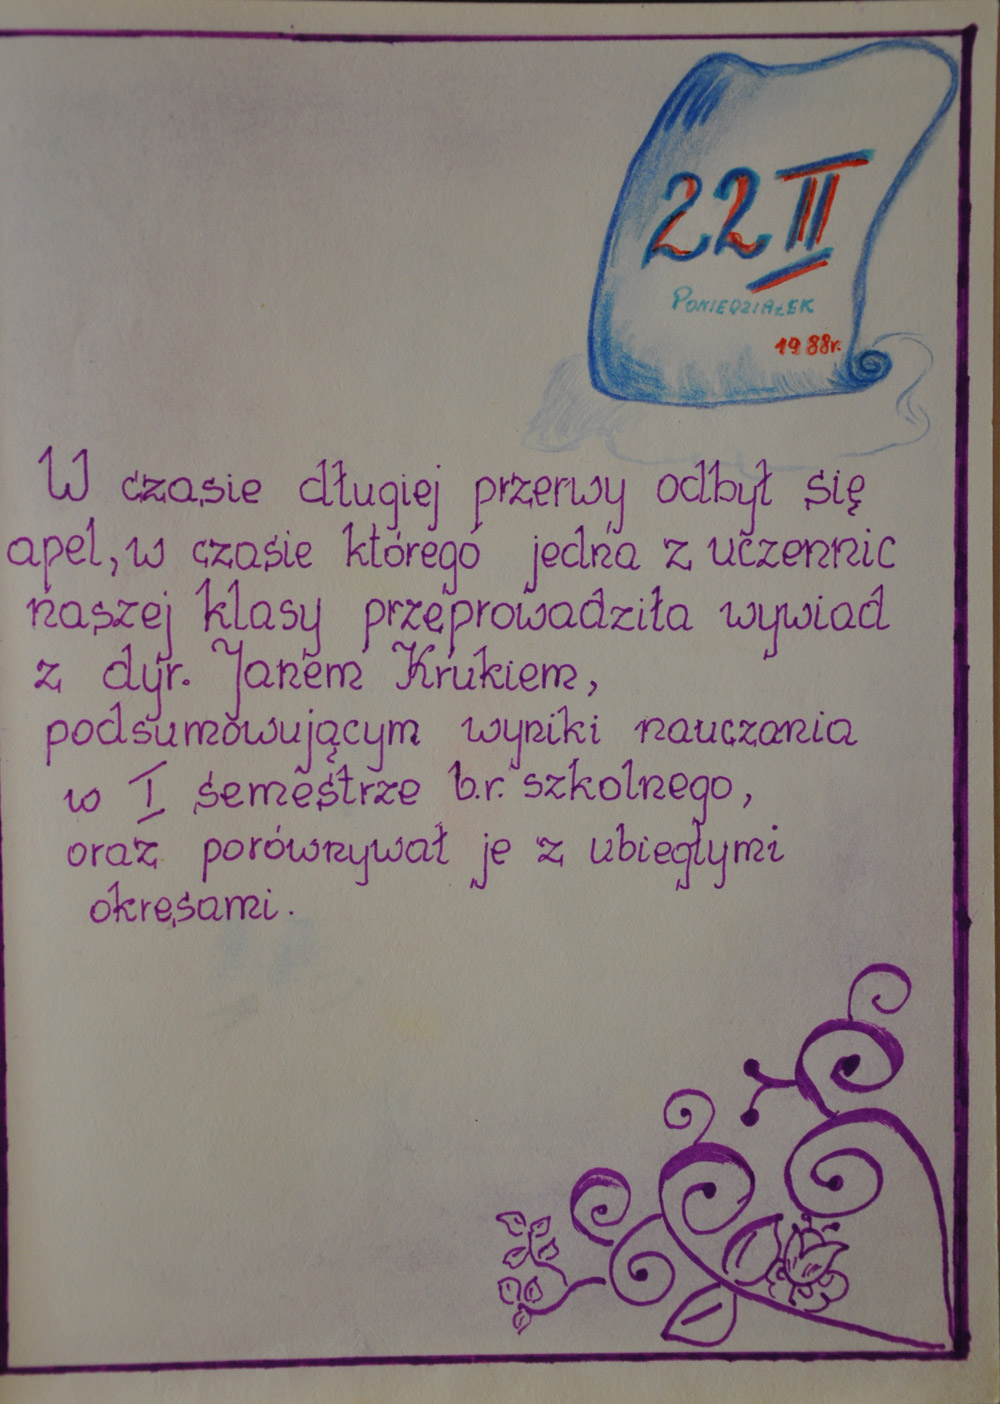 22 II
PONIEDZIAŁEK
1988r.
W czasie długiej przerwy odbył się
apel, w czasie którego jedna z uczennic
naszej klasy przeprowadziła wywiad
z dyr. Janem Krukiem,
podsumowującym wyniki nauczania
w I semestrze b.r. szkolnego,
oraz porównywał je z ubiegłymi
okresami.